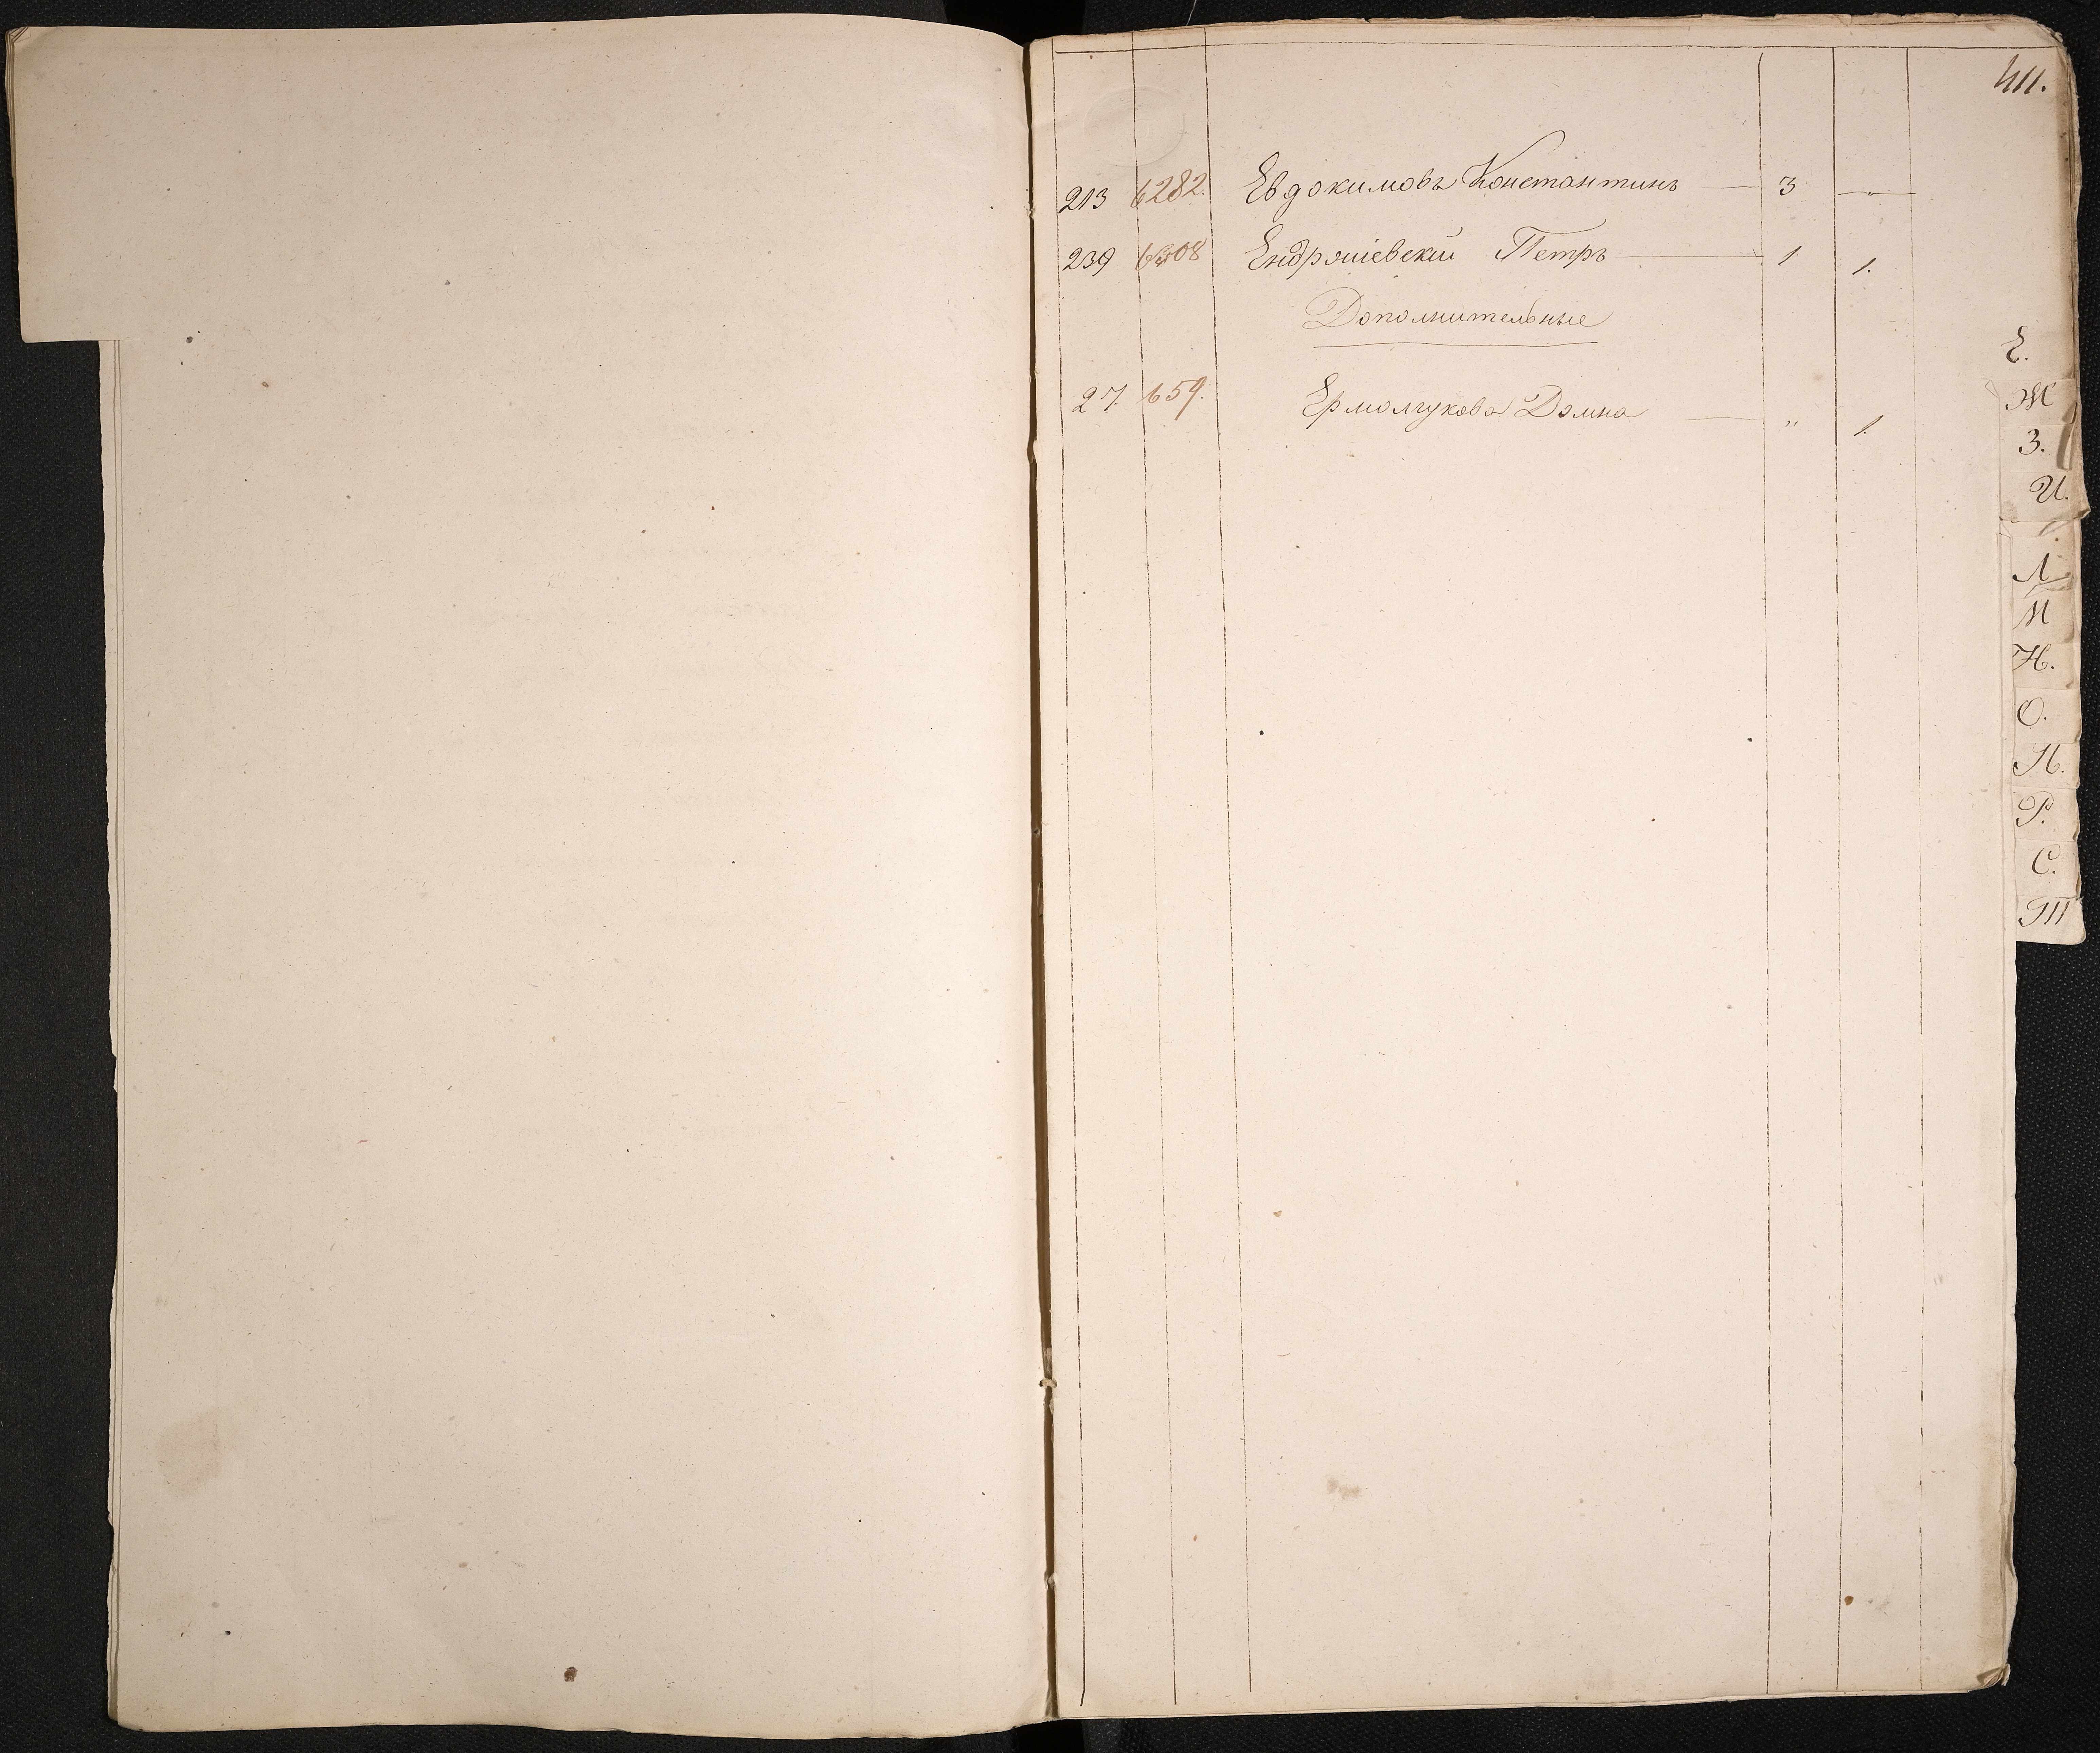 411.
213 6282. Евдокимовъ Константинъ — 3 —
239 6308 Ендряшевскій Петръ — 1 1.
Дополнительные
27. 659. Ермолчукова Домна — " 1.
Е.
Ж
З.
И.
Л
М
Н.
О.
П.
Р.
С.
Т